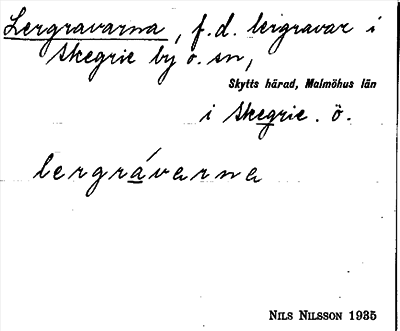 Lergravarna, f.d. lergravar i
Skegrie by o. sn,
Skytts härad, Malmöhus län
i Skegrie. ö.
lergrávarna
NILS NILSSON 1935